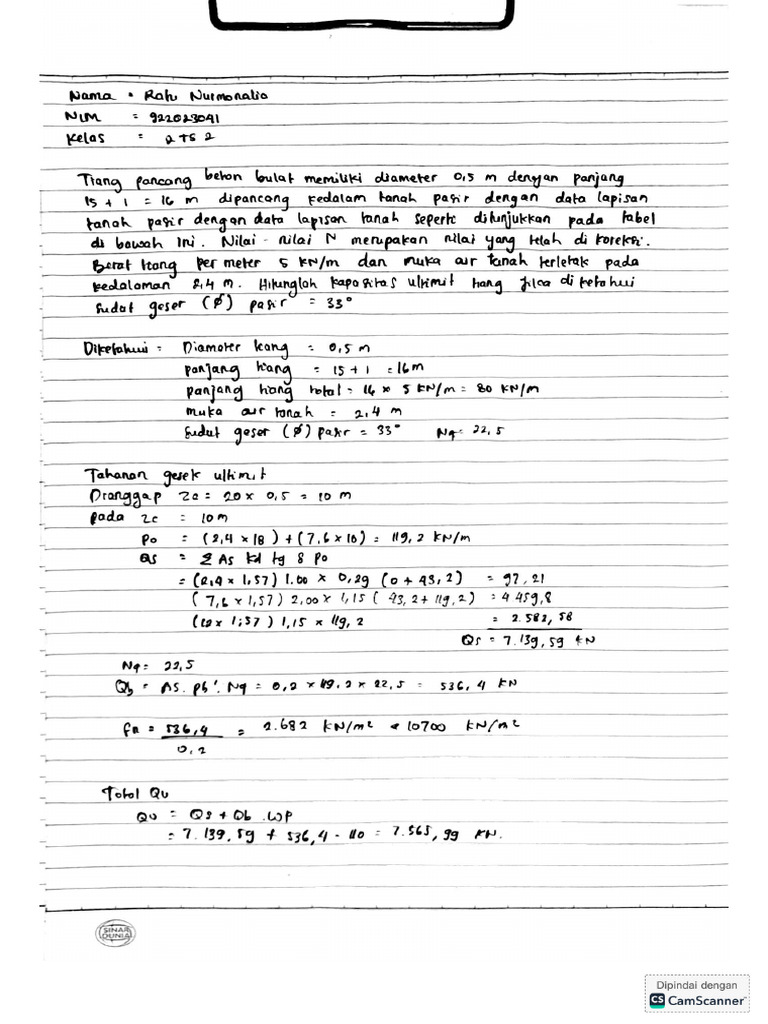 Nama = Ratu Nurmonalio
NIM = 922023041
Kelas = 2 TS 2
Tiang pancang beton bulat memiliki diameter 0,5 m dengan panjang
15 + 1 = 16 m dipancang kedalam tanah pasir dengan data lapisan
tanah pasir dengan data lapisan tanah seperti ditunjukkan pada tabel
di bawah ini. Nilai - nilai N merupakan nilai yang telah di koreksi.
Berat tiang per meter 5 KN/m dan muka air tanah terletak pada
kedalaman 2,4 m. Hitunglah kapasitas ultimit tiang jika diketahui
sudut geser (Ø) pasir = 33°
Diketahui = Diameter tiang = 0,5 m
panjang tiang = 15 + 1 = 16 m
panjang tiang total = 16 x 5 KN/m = 80 KN/m
muka air tanah = 2,4 m
sudut geser (Ø) pasir = 33° Nq = 22,5
Tahanan gesek ultimit
Dianggap Zc = 20 x 0,5 = 10 m
pada Zc = 10 m
Po = (2,4 x 18) + (7,6 x 10) = 119,2 KN/m
Qs = Σ As Kd tg δ Po
= (2,4 x 1,57) 1.00 x 0,29 (0 + 43,2) = 97,21
(7,6 x 1,57) 2,00 x 1,15 (43,2 + 119,2) = 4459,8
(10 x 1,57) 1,15 x 119,2 = 2.582,58
Qs = 7.139,59 KN
Nq = 22,5
Qb = AS. Pb'. Nq = 0,2 x 119,2 x 22,5 = 536,4 KN
fn = 536,4 = 2.682 KN/m² < 10700 KN/m²
0,2
Total Qu
Qu = Qs + Qb . Wp
= 7.139,59 + 536,4 - 110 = 7.565,99 KN.
SINAR
DUNIA
Dipindai dengan
CS CamScanner